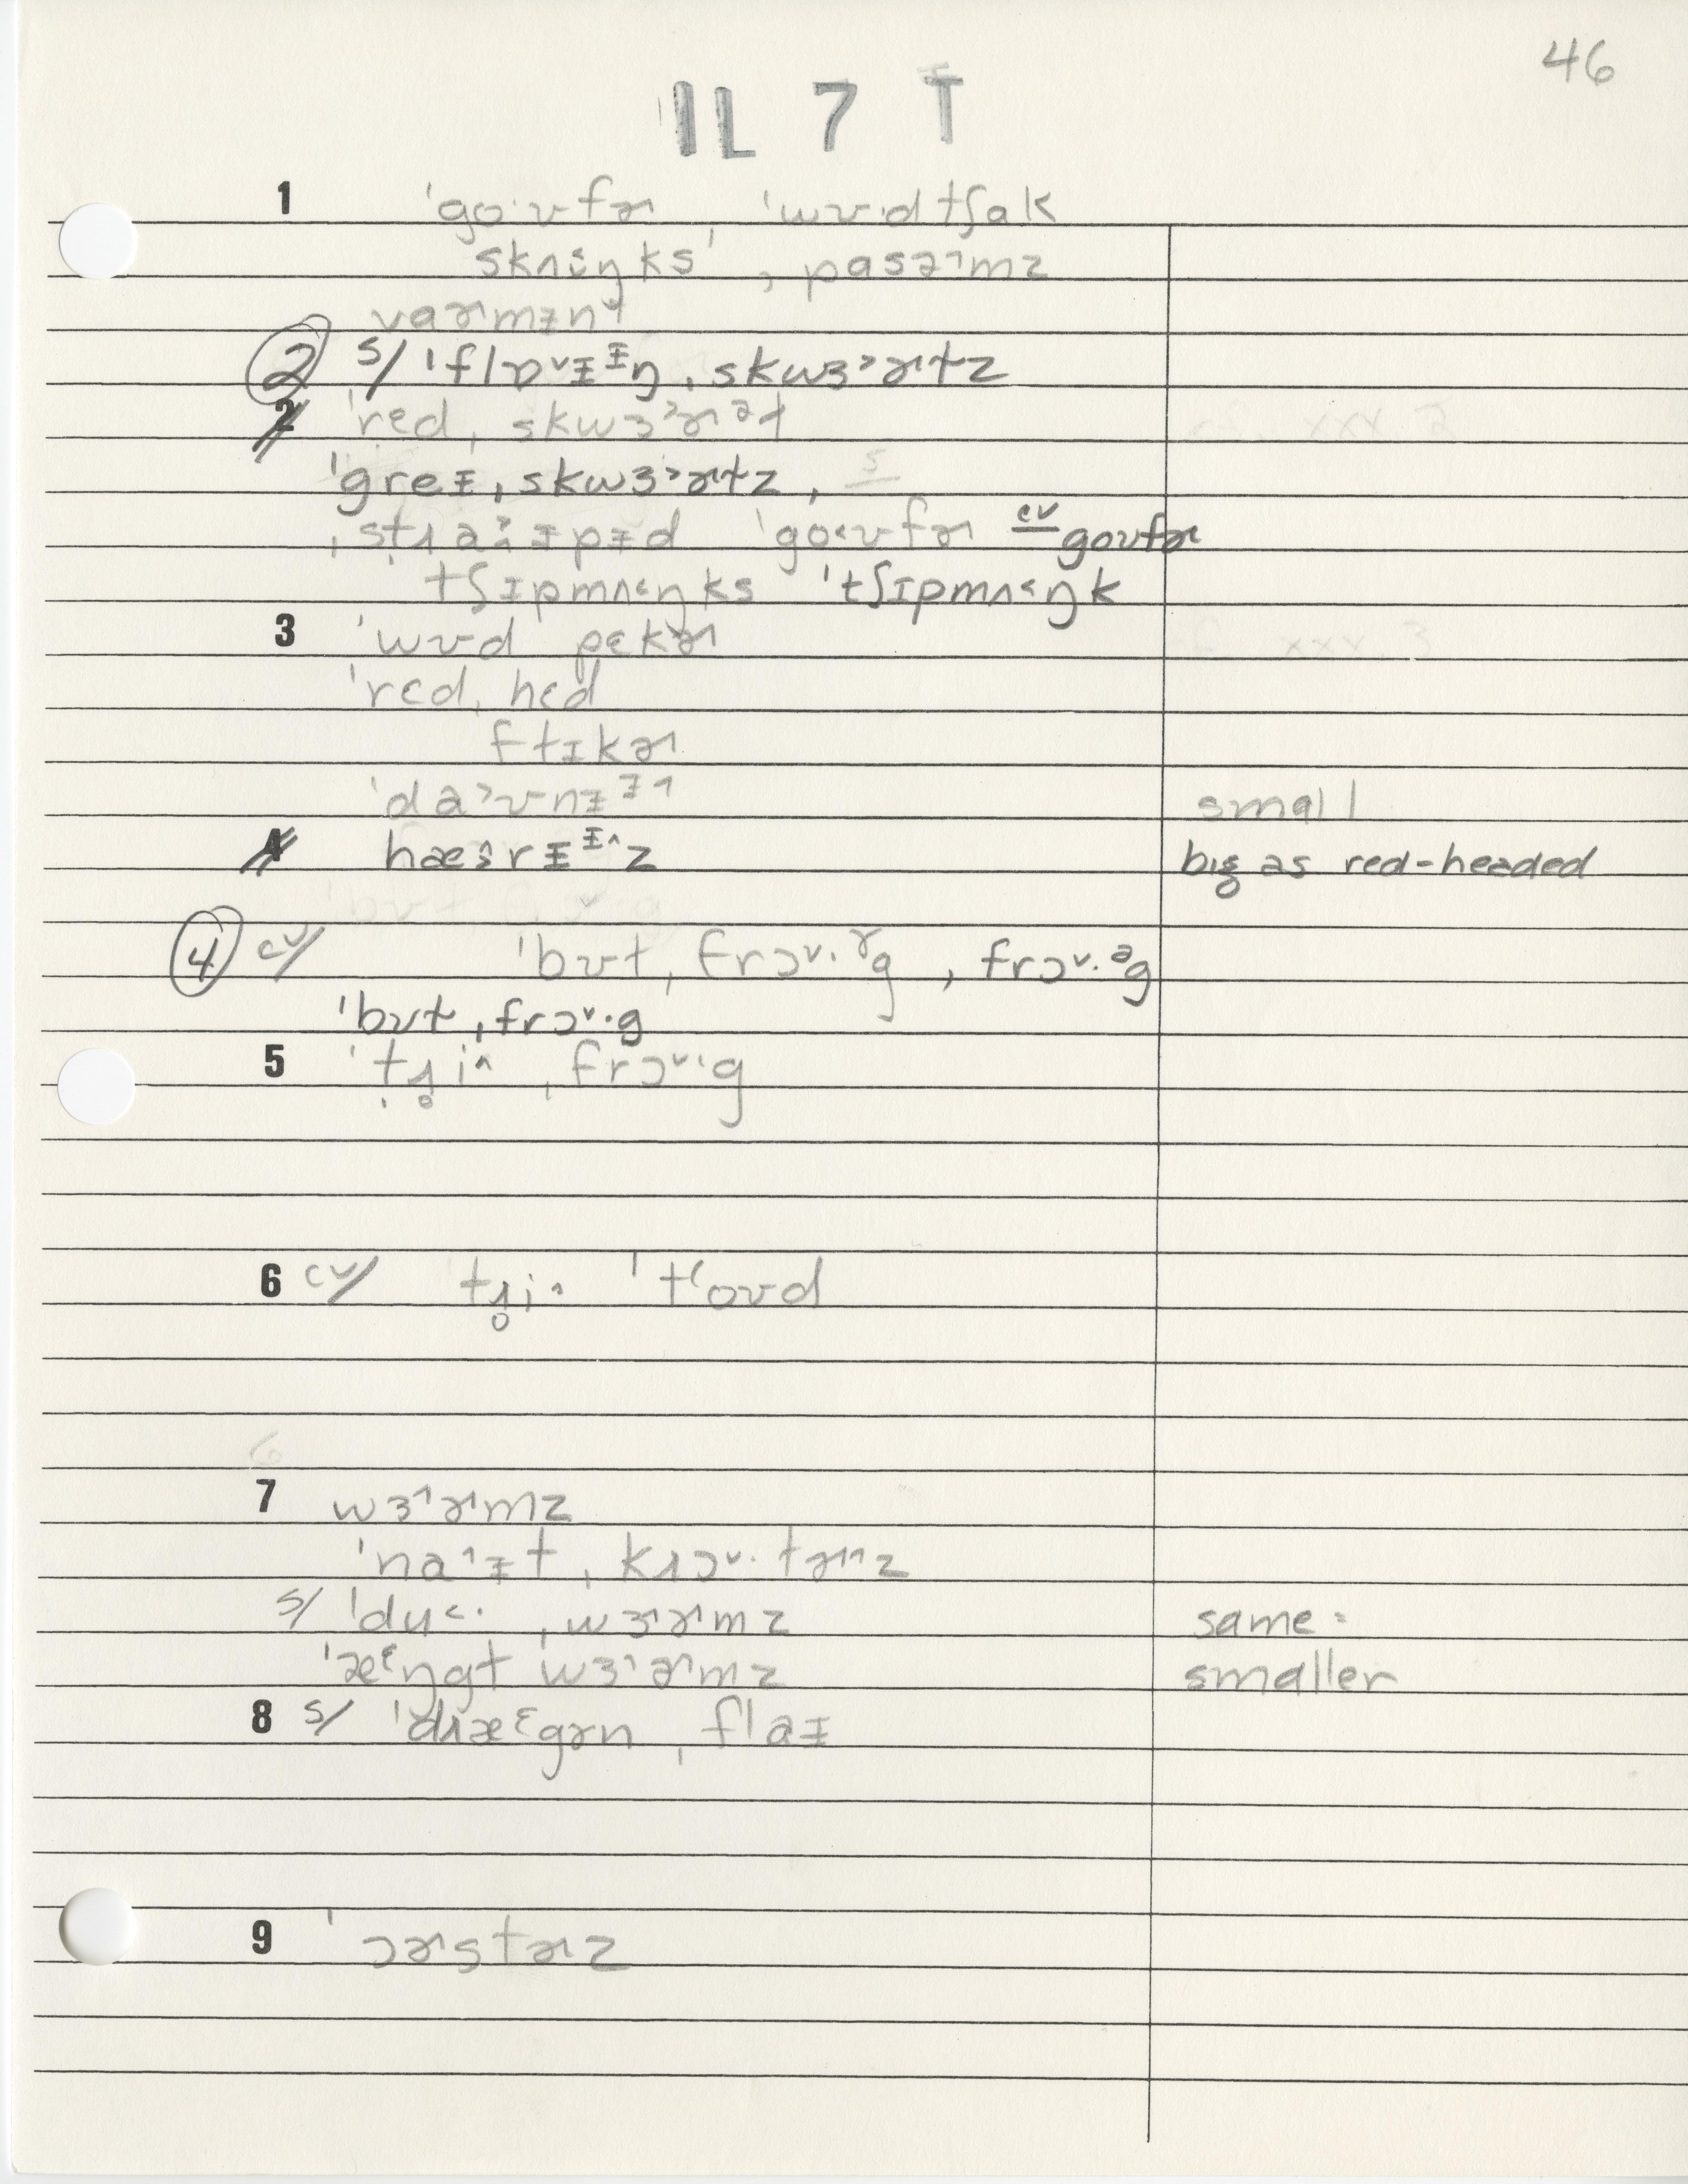 46
IL 7 T
1 ˈgoˑʊfɚ ˈwʊˑdtʃak
skʌ˂ɪŋks ˌpasəˈmz
varmɨnt
② s/ ˈflɒ˅ɨᶤŋ ˌskwɜ˃ɚɫz
2 ˈred ˌskwɜ˃ɚəɫ
ˈgreɨ ˌskwɜ˃ɚɫz ,
ˌstɹaɨpɨd ˈgo˂ʊfɚ cv goʊfɚ
tʃɪpmʌ˂ŋks ˈtʃɪpmʌ˂ŋk
3 ˈwʊd pɛkɚ
ˈrɛd ˌhɛd
flɪkɚ
ˈda˃ʊnɨᶤ˄ small
4 hæɛrɨᶤ˄z big as red-headed
④ cv/ ˈbʊɫ ˌfrɔ˅ˑɤg , frɔ˅ˑᵊg
ˈbʊɫ ˌfrɔ˅ˑg
5 ˈtɹ̥i˄ ˌfrɔ˅ˑg
6 cv/ tɹ̥i˄ ˈtʻoʊd
7 wɜ˄ɚmz
ˈna˄ɨt ˌkɹɔ˅ˑlɚz
s/ ˈdʉ˂ˑ ˌwɜ˄ɚmz same =
ˈæᵋŋgɫ wɜ˄ɚmz smaller
8 s/ ˈdɹæᵋgən ˌflaɨ
9 ˈɔɚstɚz